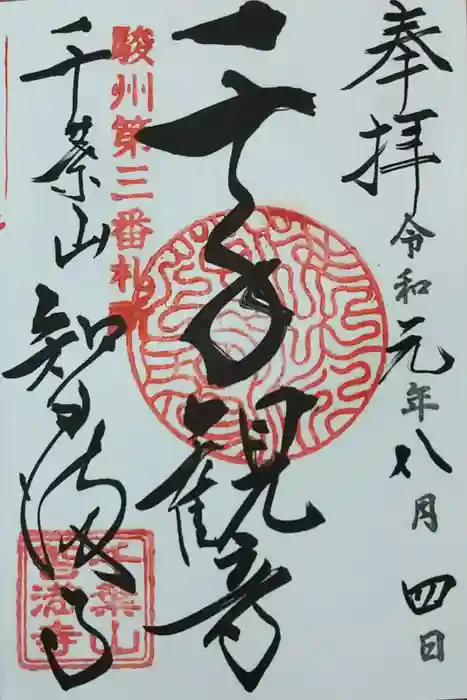 奉拝
令和元年八月四日
千手観音
駿州第三番札所
千葉山
智満寺
千葉山
智満寺